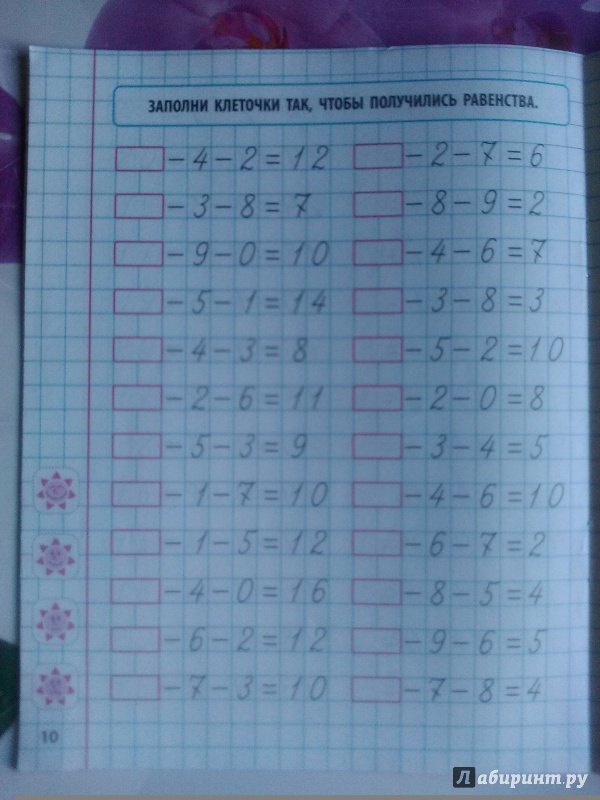 ЗАПОЛНИ КЛЕТОЧКИ ТАК, ЧТОБЫ ПОЛУЧИЛИСЬ РАВЕНСТВА.
-4-2=12 -2-7=6
-3-8=7 -8-9=2
-9-0=10 -4-6=7
-5-1=14 -3-8=3
-4-3=8 -5-2=10
-2-6=11 -2-0=8
-5-3=9 -3-4=5
-1-7=10 -4-6=10
-1-5=12 -6-7=2
-4-0=16 -8-5=4
-6-2=12 -9-6=5
-7-3=10 -7-8=4
10
Лабиринт.ру